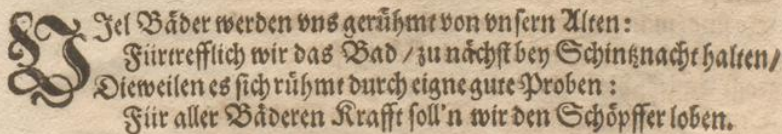 VJel Bäder werden vns gerühmt von vnsern Alten:
Fürtrefflich wir das Bad / zu nächst bey Schintznacht halten /
Dieweilen es sich rühmt durch eigne gute Proben:
Für aller Bäderen Krafft soll'n wir den Schöpffer loben.